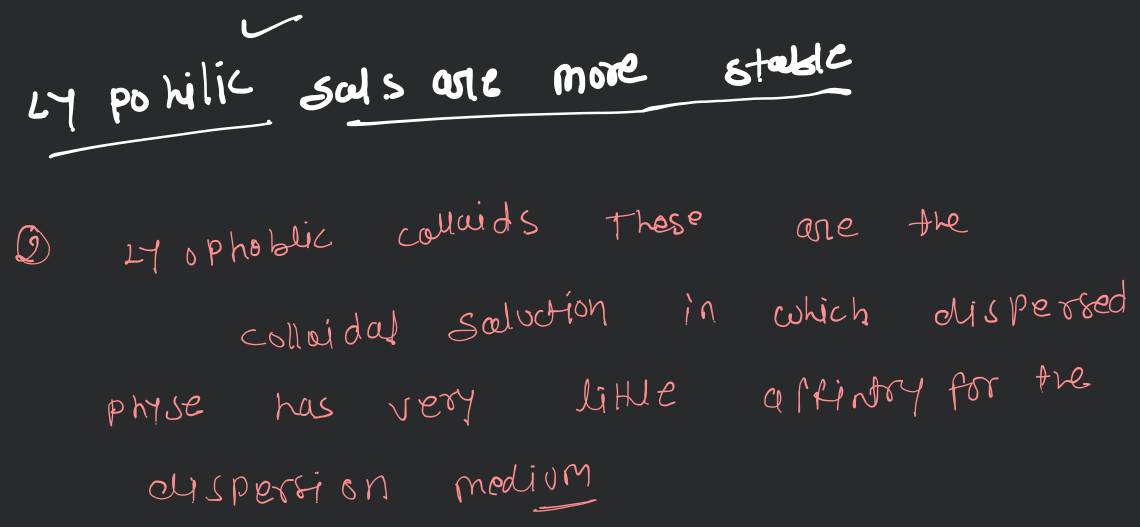 Ly pohilic sals are more stable
② Ly ophoblic collaids These are the
colloidal soeluction in which dispersed
physe has very little affintry for the
dispersion medium